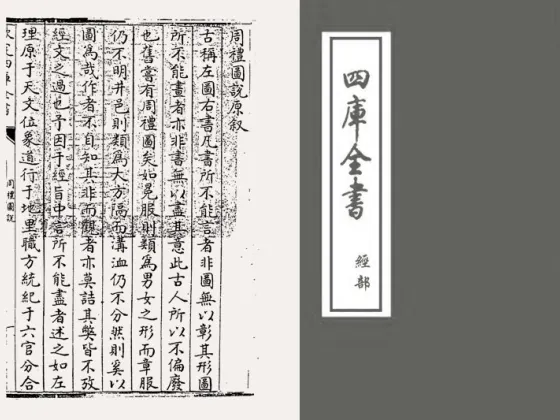 周禮圖說原叙
古稱左圖右書凡書所不能言者非圖無以彰其形圖
所不能畫者亦非書無以盡其意此古人所以不偏廢
也舊嘗有周禮圖矣如冕服則類為男女之形而章服
仍不明井邑則類為大方隔而溝洫仍不分然則奚以
圖為哉作者不自知其非而觀者亦莫詰其獘皆不攷
經文之過也予因于經旨中言所不能盡者述之如左
理原于天文位象道行于地里職方統紀于六官分合
欽定四庫全書
周禮圖說
四庫全書
經部